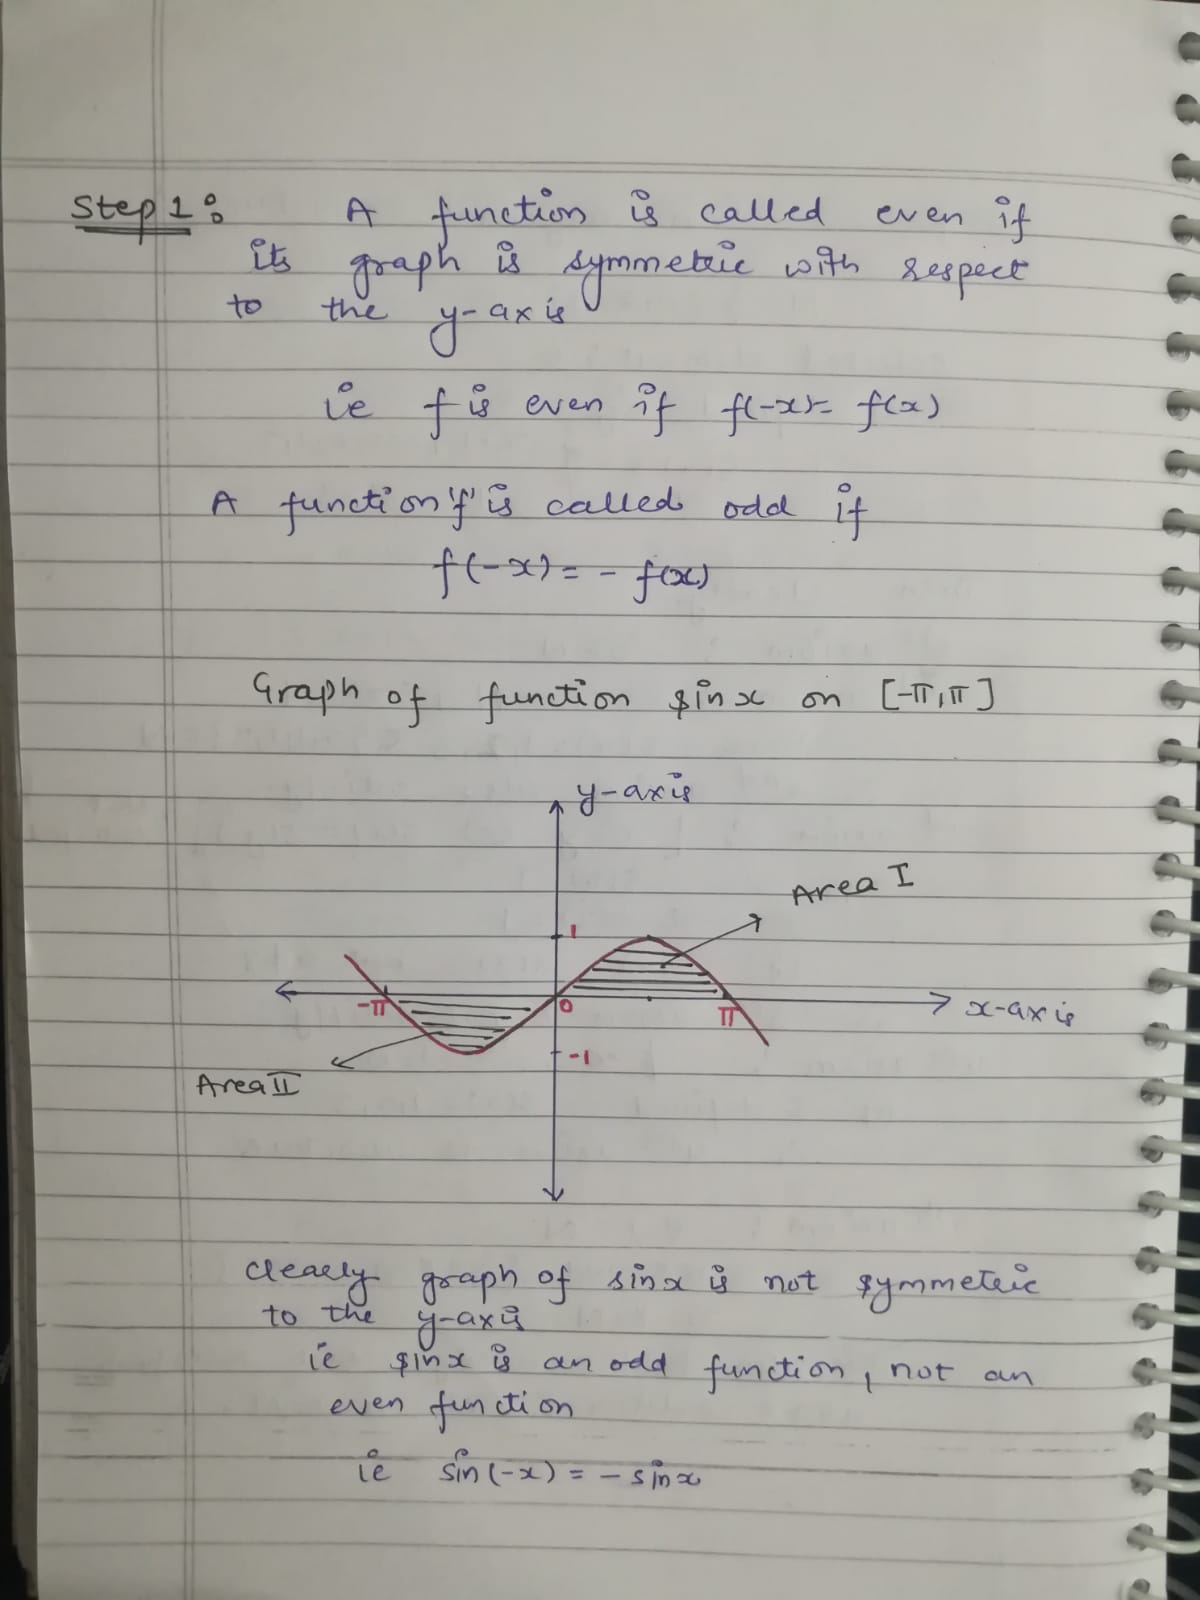 Step 1: A function is called even if
its graph is symmetric with respect
to the y-axis
ie f is even if f(-x)= f(x)
A function 'f' is called odd if
f(-x) = - f(x)
Graph of function sinx on [-π, π]
y-axis
Area I
1
-π
0
π
x-axis
-1
Area II
clearly graph of sinx is not symmetric
to the y-axis
ie sinx is an odd function, not an
even function
ie sin(-x) = - sinx